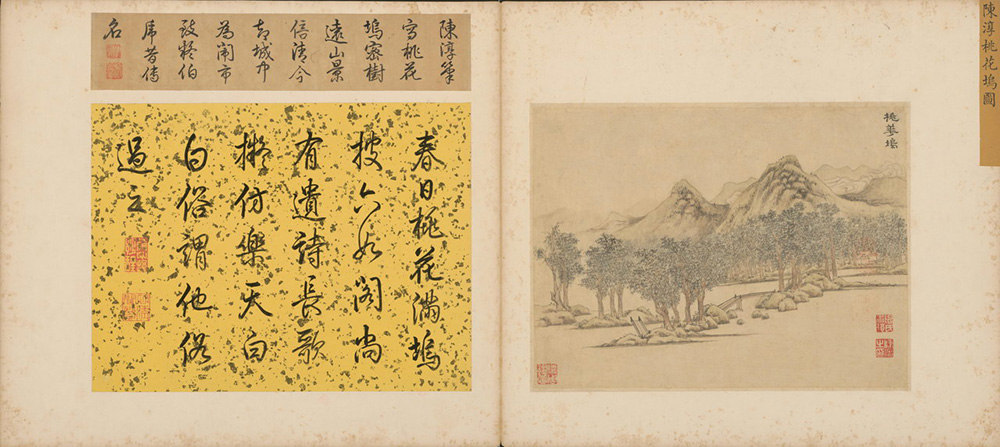 陳淳桃花塢圖
桃華塢
陳淳筆
寫桃花
塢密樹
遠山景
倍清今
却城中
為鬧市
致疑伯
虎昔傳
名
春日桃花滿塢
披六如閣尚
有遺詩長歌
擬仿樂天白
白俗謂他俗
過之